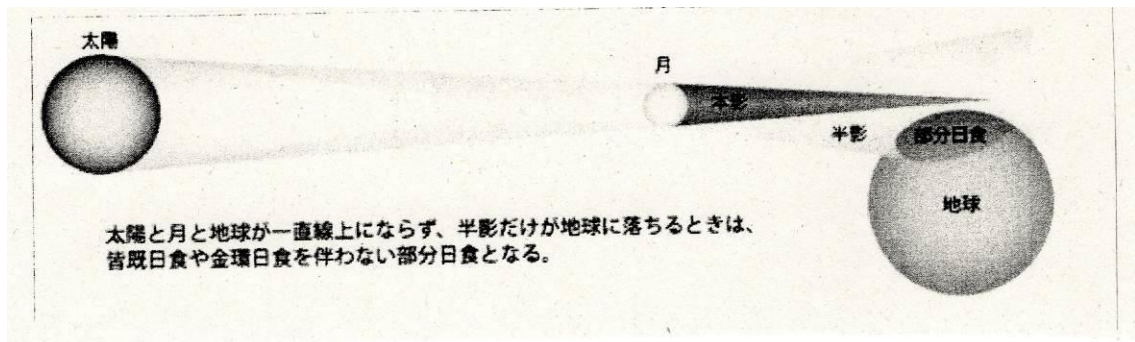 太陽
月
本影
半影
部分日食
地球
太陽と月と地球が一直線上にならず、半影だけが地球に落ちるときは、
皆既日食や金環日食を伴わない部分日食となる。